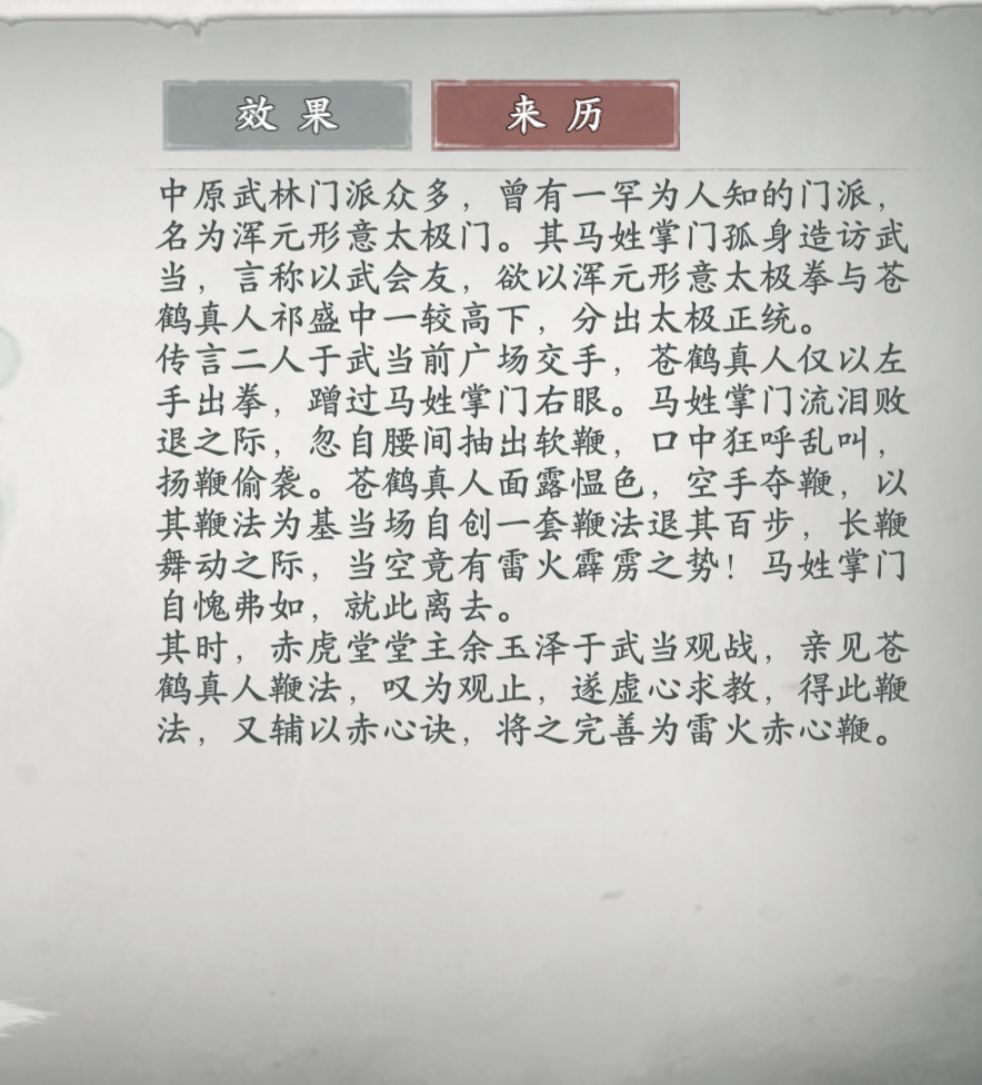 效果
来历
中原武林门派众多，曾有一罕为人知的门派，
名为浑元形意太极门。其马姓掌门孤身造访武
当，言称以武会友，欲以浑元形意太极拳与苍
鹤真人祁盛中一较高下，分出太极正统。
传言二人于武当前广场交手，苍鹤真人仅以左
手出拳，蹭过马姓掌门右眼。马姓掌门流泪败
退之际，忽自腰间抽出软鞭，口中狂呼乱叫，
扬鞭偷袭。苍鹤真人面露愠色，空手夺鞭，以
其鞭法为基当场自创一套鞭法退其百步，长鞭
舞动之际，当空竟有雷火霹雳之势！马姓掌门
自愧弗如，就此离去。
其时，赤虎堂堂主余玉泽于武当观战，亲见苍
鹤真人鞭法，叹为观止，遂虚心求教，得此鞭
法，又辅以赤心诀，将之完善为雷火赤心鞭。